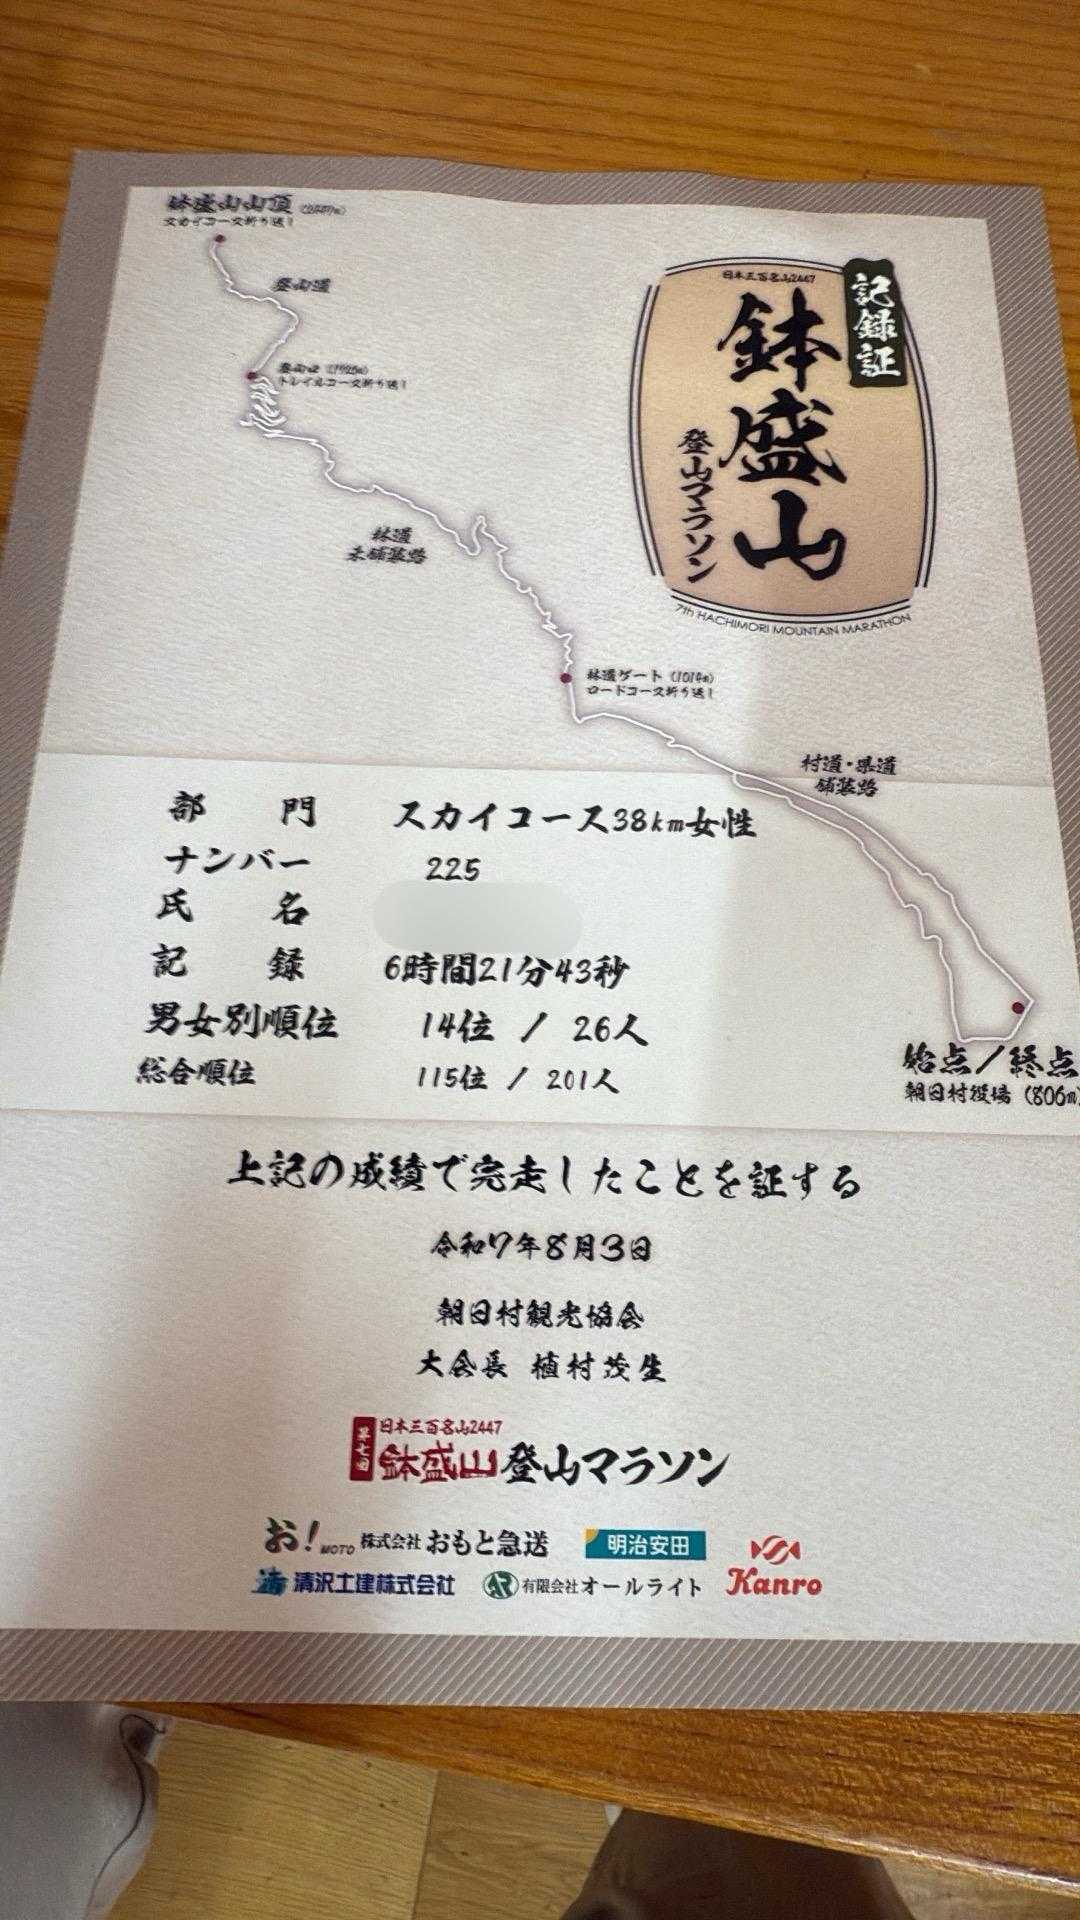 鉢盛山山頂(2447m)
スカイコース折り返し
登山道
登山口(1925m)
トレイルコース折り返し
林道
未舗装路
林道ゲート(1014m)
ロードコース折り返し
村道・県道
舗装路
始点/終点
朝日村役場(806m)
日本三百名山2447
記録証
鉢盛山
登山マラソン
7th HACHIMORI MOUNTAIN MARATHON
部門 スカイコース38km女性
ナンバー 225
氏名
記録 6時間21分43秒
男女別順位 14位 / 26人
総合順位 115位 / 201人
上記の成績で完走したことを証する
令和7年8月3日
朝日村観光協会
大会長 植村茂生
第七回
日本三百名山2447
鉢盛山登山マラソン
お!MOTO 株式会社おもと急送 明治安田
清沢土建株式会社 AR 有限会社オールライト Kanro